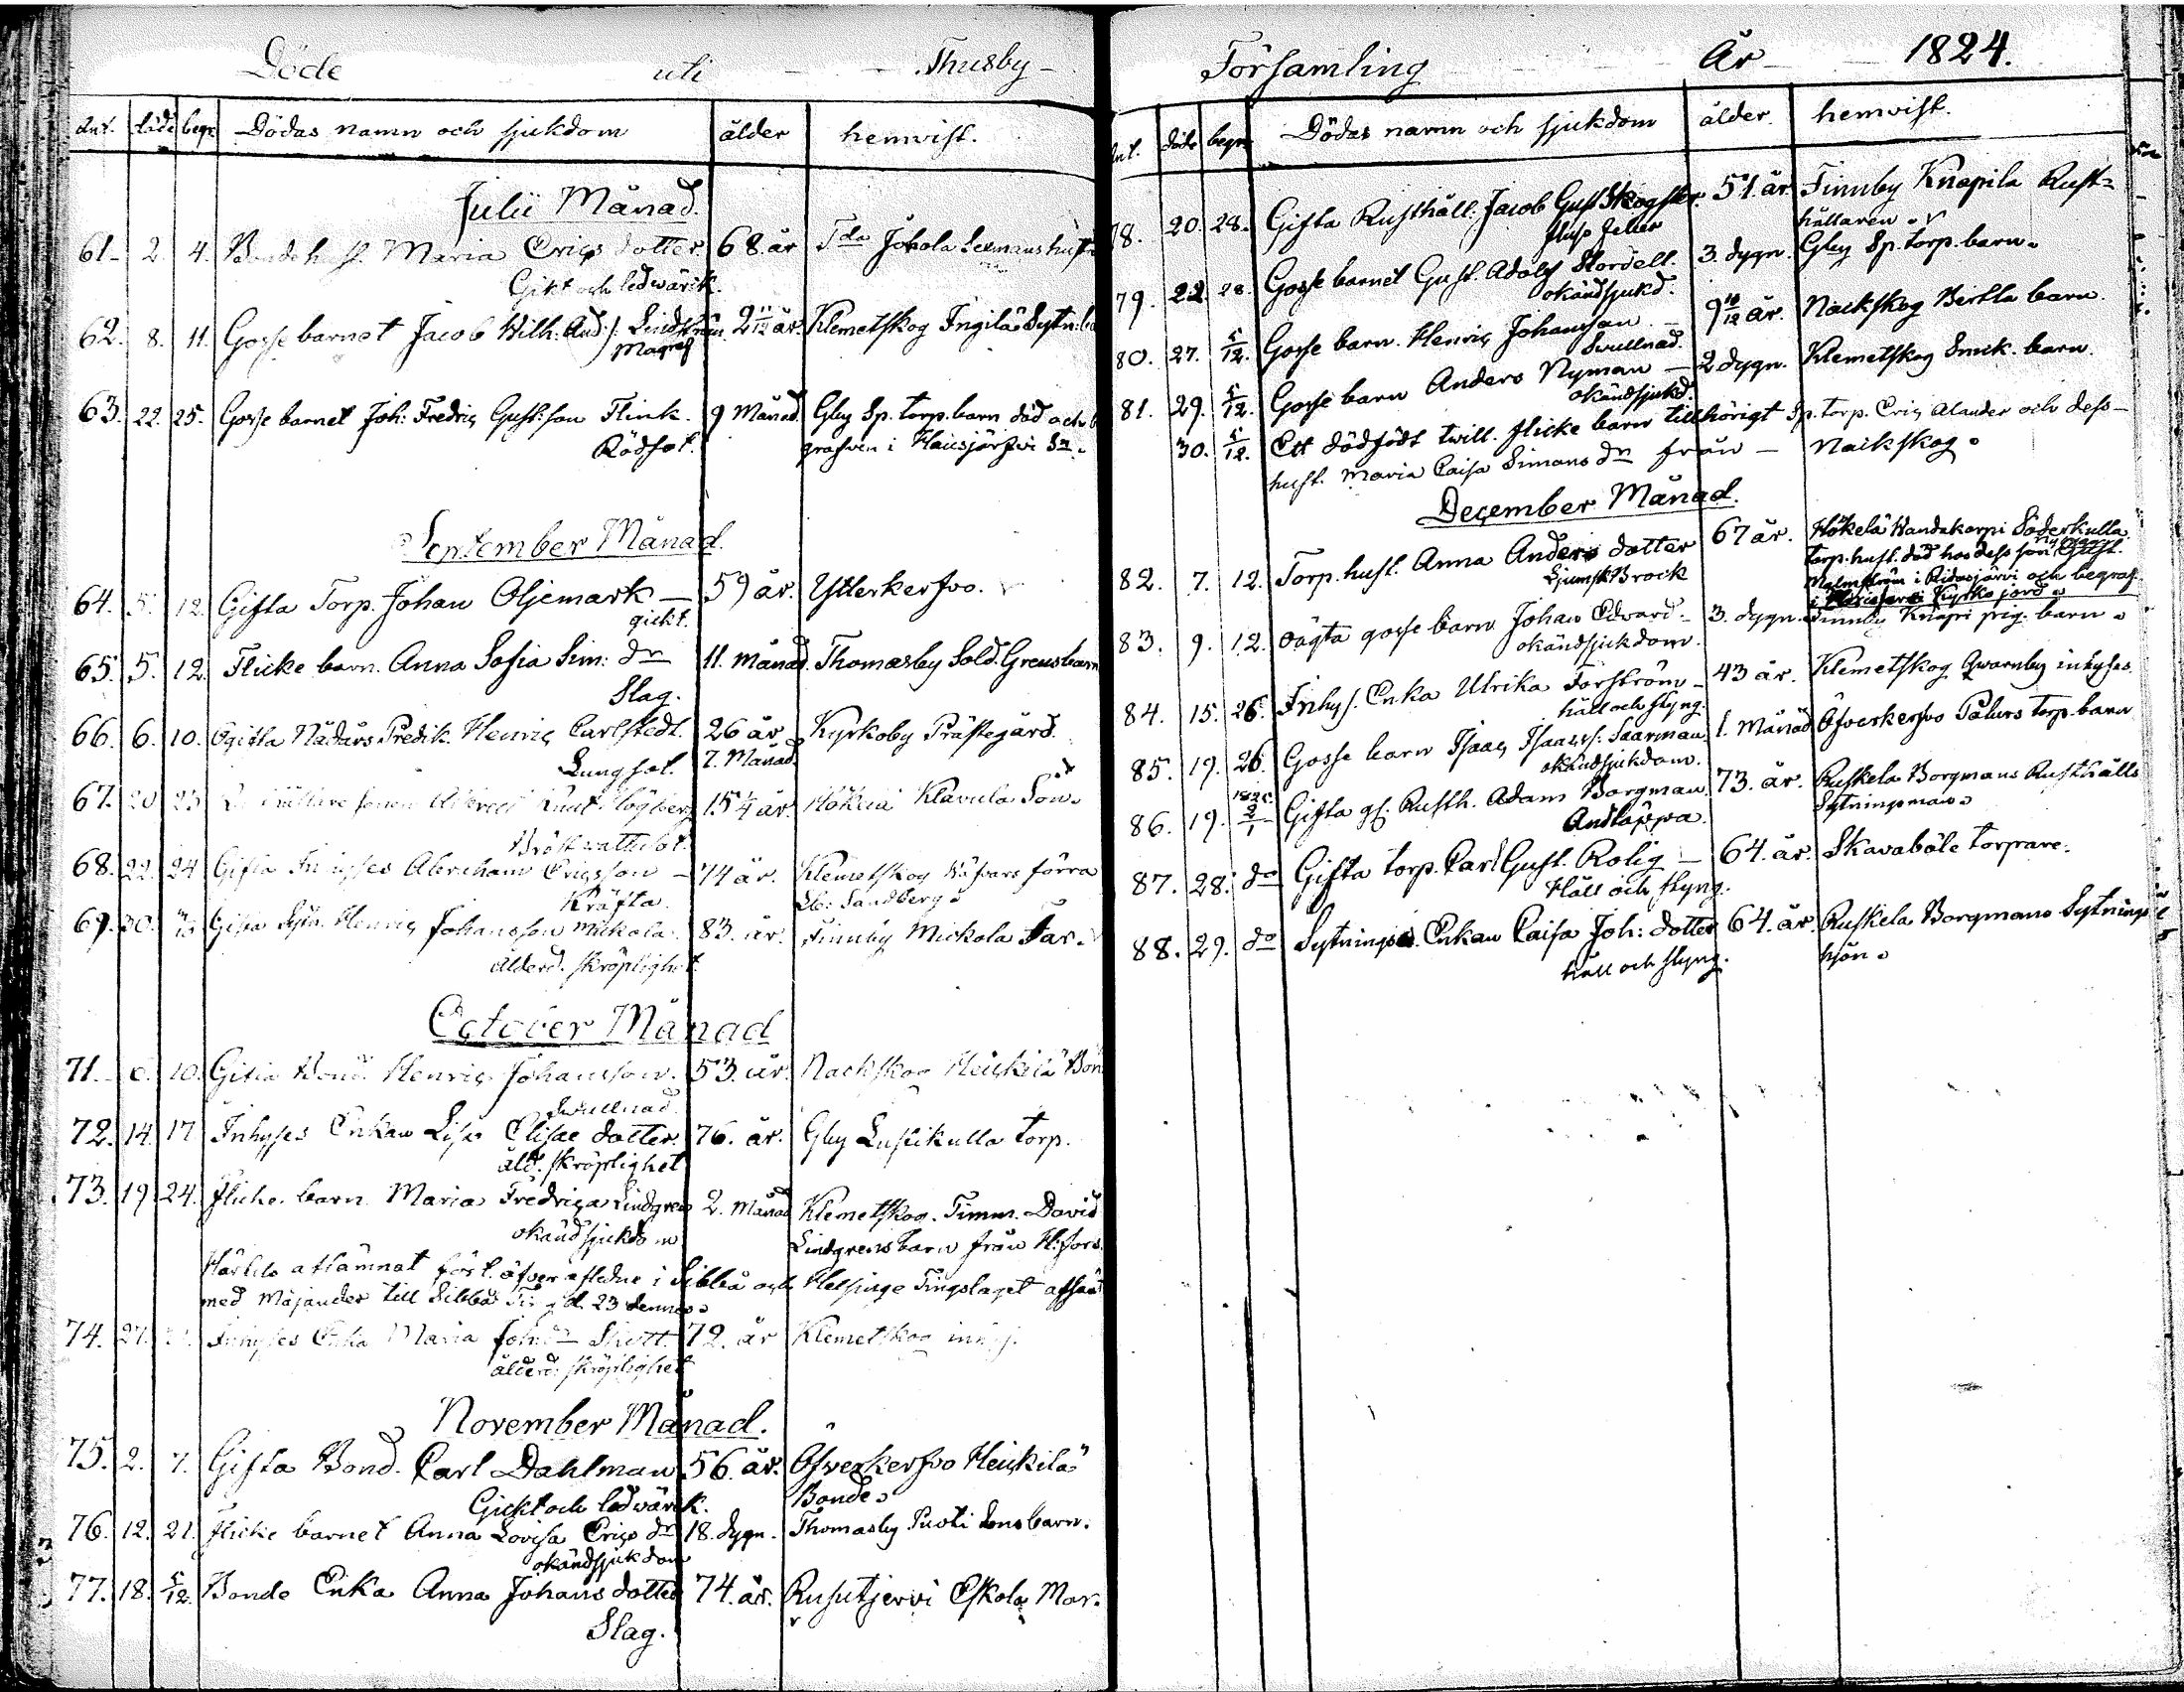 Döde uti Thusby
Ant. död begr. Dödas namn och sjukdom ålder hemvist.
Julii Månad.
61. 2. 4. Bonde hust. Maria Erics dotter. 68. år Jokola hustru
Gikt och ledwärk.
62. 8. 11. Gosse barnet Jacob Wilh: And:s: Lindström 2 11/12 år. Klemetskog Ingilä Sytn:
Magref
63. 22. 25. Gosse barnet Joh: Fredric Gust:son Flink. 9 Månad. Gby Sp. torp. barn död och be
Rödsot. grafven i Hausjärfvi Sn.
September Månad.
64. 5. 12. Gifta Torp. Johan Oljemark — 59 år. Ytterkerfvo.
gickt.
65. 5. 12. Flicke barn. Anna Sofia Sim: dr 11. Månad. Thomasby Sold. Grens barn
Slag.
66. 6. 10. Ogifta Nådårs Predik. Henric Carlstedt. 26 år Kyrkoby Prästegård.
Lungsot. 7. Månad.
67. 20 23 sonen Knut Högberg 15 1/4 år. Hökilä Klavula Son.
Bröst wattusot.
68. 22. 24 Gifta Inhyses Abraham Ericsson — 74 år. Klemetskog förra
Kräfta. Sandberg.
69. 30. Gifta Sytn. Henric Johansson Mickola. 83. år. Finnby Mickola Far.
Ålderd. skröplighet.
October Månad
71. 6. 10. Gifta Bond. Henric Johansson. 53. år. Nackskog Heickilä Bon
Swullnad.
72. 14. 17 Inhyses Enkan Lisa Elisæ dotter. 76. år. Gby Lustikulla torp.
åld. skröplighet
73. 19. 24. Flicke barn. Maria Fredrica Lindgren 2. Månad Klemetskog. Timm. David
okänd sjukdom Lindgrens barn från H:fors.
Härtils aflämnat öfver aflidne i Sibbå och Helsinge Tingslaget
med till Sibbå d. 23 dennes.
74. 27. Inhyses Enka Maria Joh: dr Skytt. 72. år Klemetskog inhys.
ålderd: skröplighet
November Månad.
75. 2. 7. Gifta Bond. Carl Dahlman 56. år. Öfverkerfvo Heickilä
Gickt och ledwärk. Bonde.
76. 12. 21. Flicke barnet Anna Lovisa Erics dr 18. dygn. Thomasby barn.
okänd sjukdom
77. 18. 5/12. Bonde Enka Anna Johans dotter 74. år. Rusutjervi Eskola Mor.
Slag.
Församling År 1824.
Ant. död begr. Dödas namn och sjukdom ålder. hemvist.
78. 20. 28. Gifta Rusthåll: Jacob Gust Skogster. 51. år. Finnby Knapila Rust=
hållaren.
79. 22. 28. Gosse barnet Gust. Adolf Nordell. 3. dygn. Gby Sp. torp. barn.
okänd sjukd.
80. 27. 5/12. Gosse barn. Henric Johansson — 9 10/12 år. Nackskog Bertla barn.
Swullnad.
81. 29. 5/12. Gosse barn Anders Nyman — 2 dygn. Klemetskog Smek. barn.
okänd sjukd.
30. 5/12. Ett dödfödt twill. flicke barn tillhörigt Sp. torp. Eric Alander och dess
hust. Maria Caisa Simons dr från — Nackskog.
December Månad.
82. 7. 12. Torp. hust. Anna Anders dotter 67 år. Hökelä Wandakorpi Söderkulla
Ljumsk Brock torp. hust. död hos dess son Gust.
Malmström i Ridasjärvi och begraf.
i Kyrko jord.
83. 9. 12. Oägta gosse barn Johan Edvard — 3. dygn. Finnby Knapi pig. barn.
okänd sjukdom.
84. 15. 26. Inhys. Enka Ulrika Forström — 43 år. Klemetskog Qwarnby inhyses.
håll och styng.
85. 19. 26. Gosse barn Isaac Isaacss: Saarman. 1. Månad Öfverkerfvo Pålurs torp. barn
okänd sjukdom.
86. 19. 1825 2/1 Gifta gl. Rusth. Adam Borgman. 73. år. Ruskela Borgmans Rusthålls
Andtäppa. Sytningsman.
87. 28. do Gifta torp. Carl Gust. Rolig — 64. år. Skavaböle torpare.
Håll och styng.
88. 29. do Sytnings Enkan Caisa Joh: dotter 64. år. Ruskela Borgmans Sytnings
håll och styng. hjon.